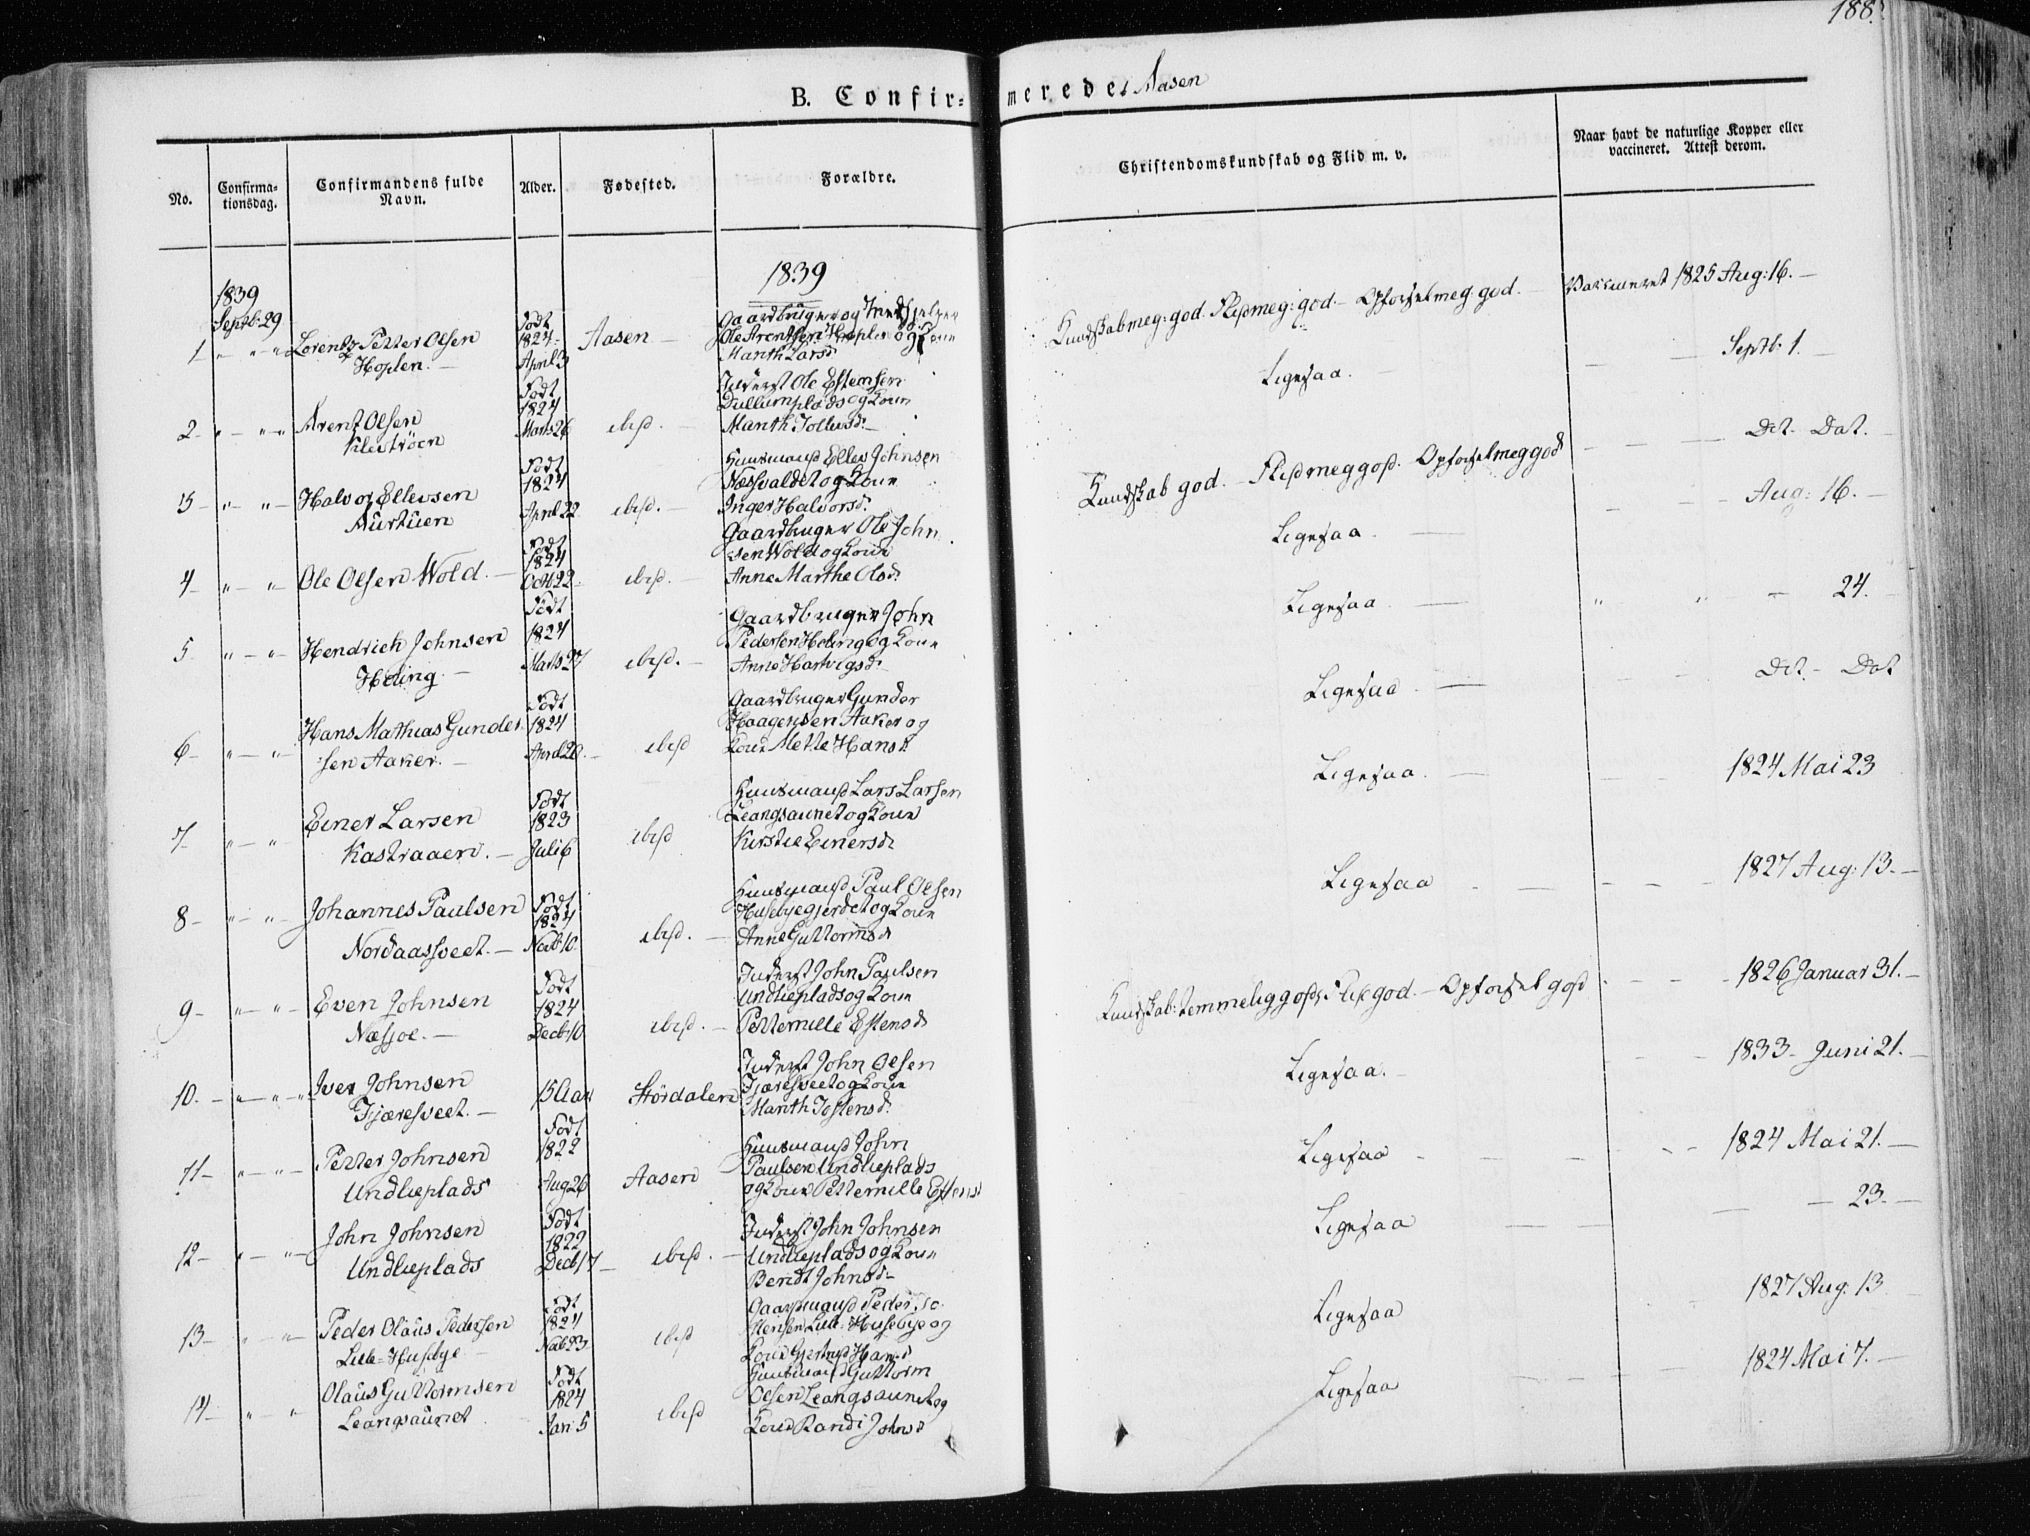 188.
B. Confir- merede i Aasen
No.
Confirma-
tionsdag.
Confirmandens fulde
Navn.
Alder.
Fødested.
Forældre.
Christendomskundskab og Flid m. v.
Naar havt de naturlige Kopper eller
vaccineret. Attest derom.
1839
1839
Septb: 29
1 " — " — " Lorentz Petter Olsen
Hoplen. —
Født
1824
April 3
Aasen —
Gaardbruger og
Ole Arentsen Hoplen og Kone
Marith Larsd
Kundskab meg: god. Flid meg: god — Opførsel meg: god. —
Vaccineret 1825 Aug: 16. —
2 — " — " " Arent Olsen
Født
1824
Marts 26
ibid. —
Inderst Ole Estensen
Dullumplads og Kone
Marith
Ligesaa. —
Septb. 1. —
3 — " — " — Halvor Ellevsen
Aurtuen
Født
1824
April 22
ibid. —
Huusmand Ellev Johnsen
Næssvaldet og Kone
Inger Halvorsd.
Kundskab god. — Flid meg god. Opførsel meg god
Det — Dat. —
4 — " — " Ole Olsen Wold. —
Født
1824
Octb 22.
ibid. —
Gaardbruger Ole John
sen Wold og Kone
Anne Marthe Olsd.
Ligesaa —
Aug: 16. —
5 — " — " — Hendrich Johnsen
Høling. —
Født
1824
Marts 27
ibid. —
Gaardbruger John
Pedersen Høling og Kone
Anne Hartvigsd. —
Ligesaa — " " — 24. —
6 — " — " — Hans Mathias Gunder
sen Aaker. —
Født
1824
April 20. —
ibid
Gaardbruger Gunder
Haagensen Aaker og
Kone Mette Hansd.
Ligesaa —
Det — Dat
7 — " — " Einer Larsen
Kastraaen. —
Født
1823
Juli 6
ibid
Huusmand Lars Larsen
Leangsaunet og Kone
Kirstie Einersd.
Ligesaa —
1824 Mai 23
8 — " — " — Johannes Paulsen
Nordaassveet. —
Født
1824
Novb 10.
ibid. —
Huusmand Paul Olsen
Husebyegjerdet og Kone
Anne Guttormsd.
Ligesaa —
1827 Aug: 13. —
9 — " — " — Even Johnsen
Næssjoe. —
Født
1824
Decb 10
ibid. —
Inderst John Paulsen
Undlieplads og Kone
Petternille Estensd
Kundskab: temmelig god, Flid god. — Opførsel god
1826 Januar 31. —
10. — " — " — " Iver Johnsen
Fjæresveet. —
15 Aar
Størdalen
Inderst John Olsen
Fjæresveet og Kone
Marith Jostensd.
Ligesaa. —
1833 — Juni 21. —
11 — " — " — Petter Johnsen
Undlieplads
Født
1822
Aug 26
Aasen
Huusmand John
Paulsen Undlieplads
og Kone Petternille Estens
Ligesaa —
1824 Mai 21. —
12 — " — " — John Johnsen
Undlieplads
Født
1822
Decb 17 —
ibid. —
Inderst John Johnsen
Undlieplads og Kone
Berit Johnsd —
Ligesaa —
— 23. —
13 — " — " — Peder Olaus Pedersen
Lille-Husebye —
Født
1824
Novb 23
ibid
Gaardmand Peder
Lille-Husebye og
Kone Gjertrud Hansd
Ligesaa
1827 Aug: 13
14 — " — " Olaus Guttormsen
Leangsaunet
Født
1824
Jan: 5
ibid
Huusmand Guttorm
Olsen Leangsaunet og
Kone Randi Johnsd
Ligesaa —
1824 Mai 7. —